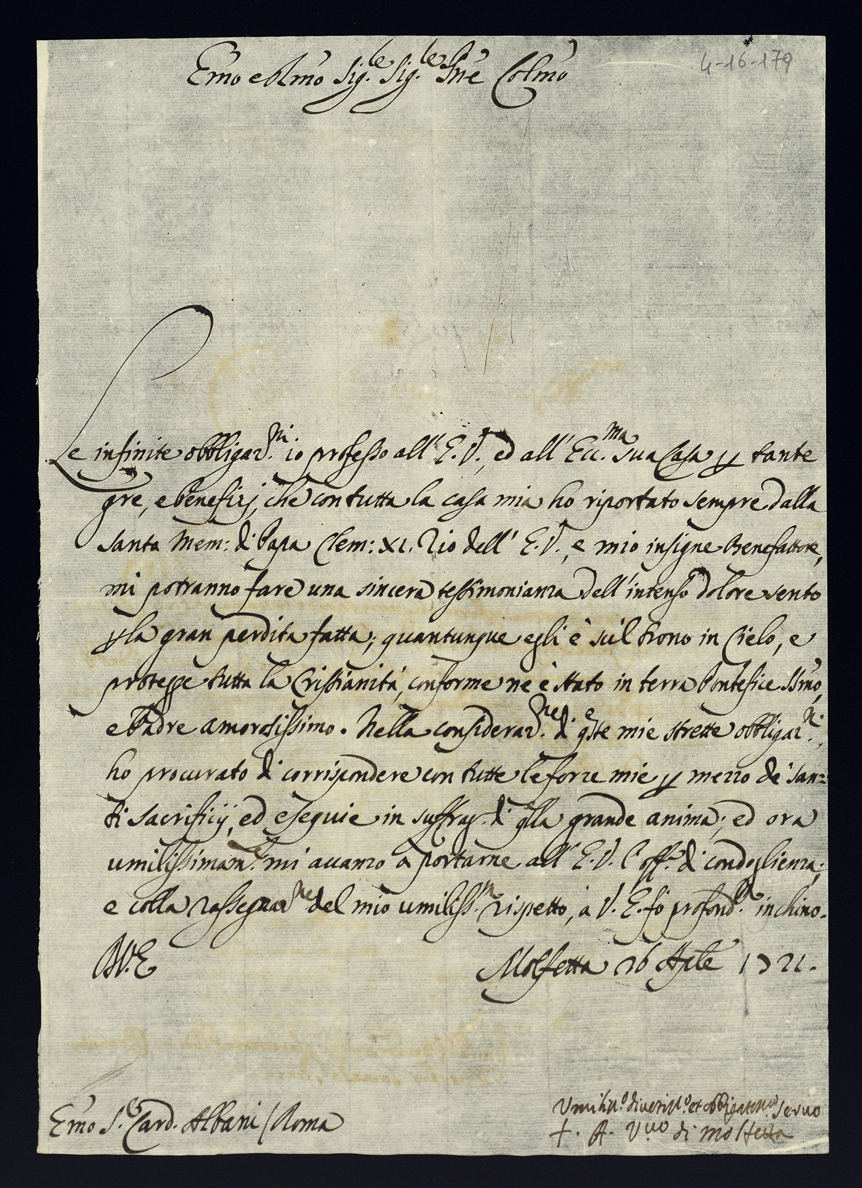 4-16-179
Em̃o e Rm̃o Sig.re Sig.re Pñe Colm̃o
Le infinite obbligaz.ni io professo all' E.V., ed all' Ecc.ma sua Casa p tante
gre, e benefizj, che con tutta la casa mia ho riportato sempre dalla
Santa Mem: di Papa Clem: XI. Zio dell' E.V., e mio insigne Benefattore,
mi potranno fare una sincera testimonianza dell' intenso dolore sento
p la gran perdita fatta; quantunque egli è sù'l trono in Cielo, e
protegge tutta la Cristianità, conforme ne è stato in terra Pontefice SSm̃o,
e Padre amorosissimo. Nella consideraz.ne di qste mie strette obbligaz.ni,
ho procurato di corrispondere con tutte le forze mie p mezzo de' san=
ti sacrificij, ed esequie in suffrag. di qlla grande anima; ed ora
umilissimam.te mi avanzo a portarne all' E.V. l'off.o di condoglienza;
e colla rassegnaz.ne del mio umiliss.mo rispetto, à V.E. fo profond.mo inchino.
D.V.E.
Molfetta 26 Aprile 1721.
Em̃o S.r Card. Albani / Roma
Umiliss.o divotiss.o et obbligatiss.o servo
+ A. V.vo di Molfetta